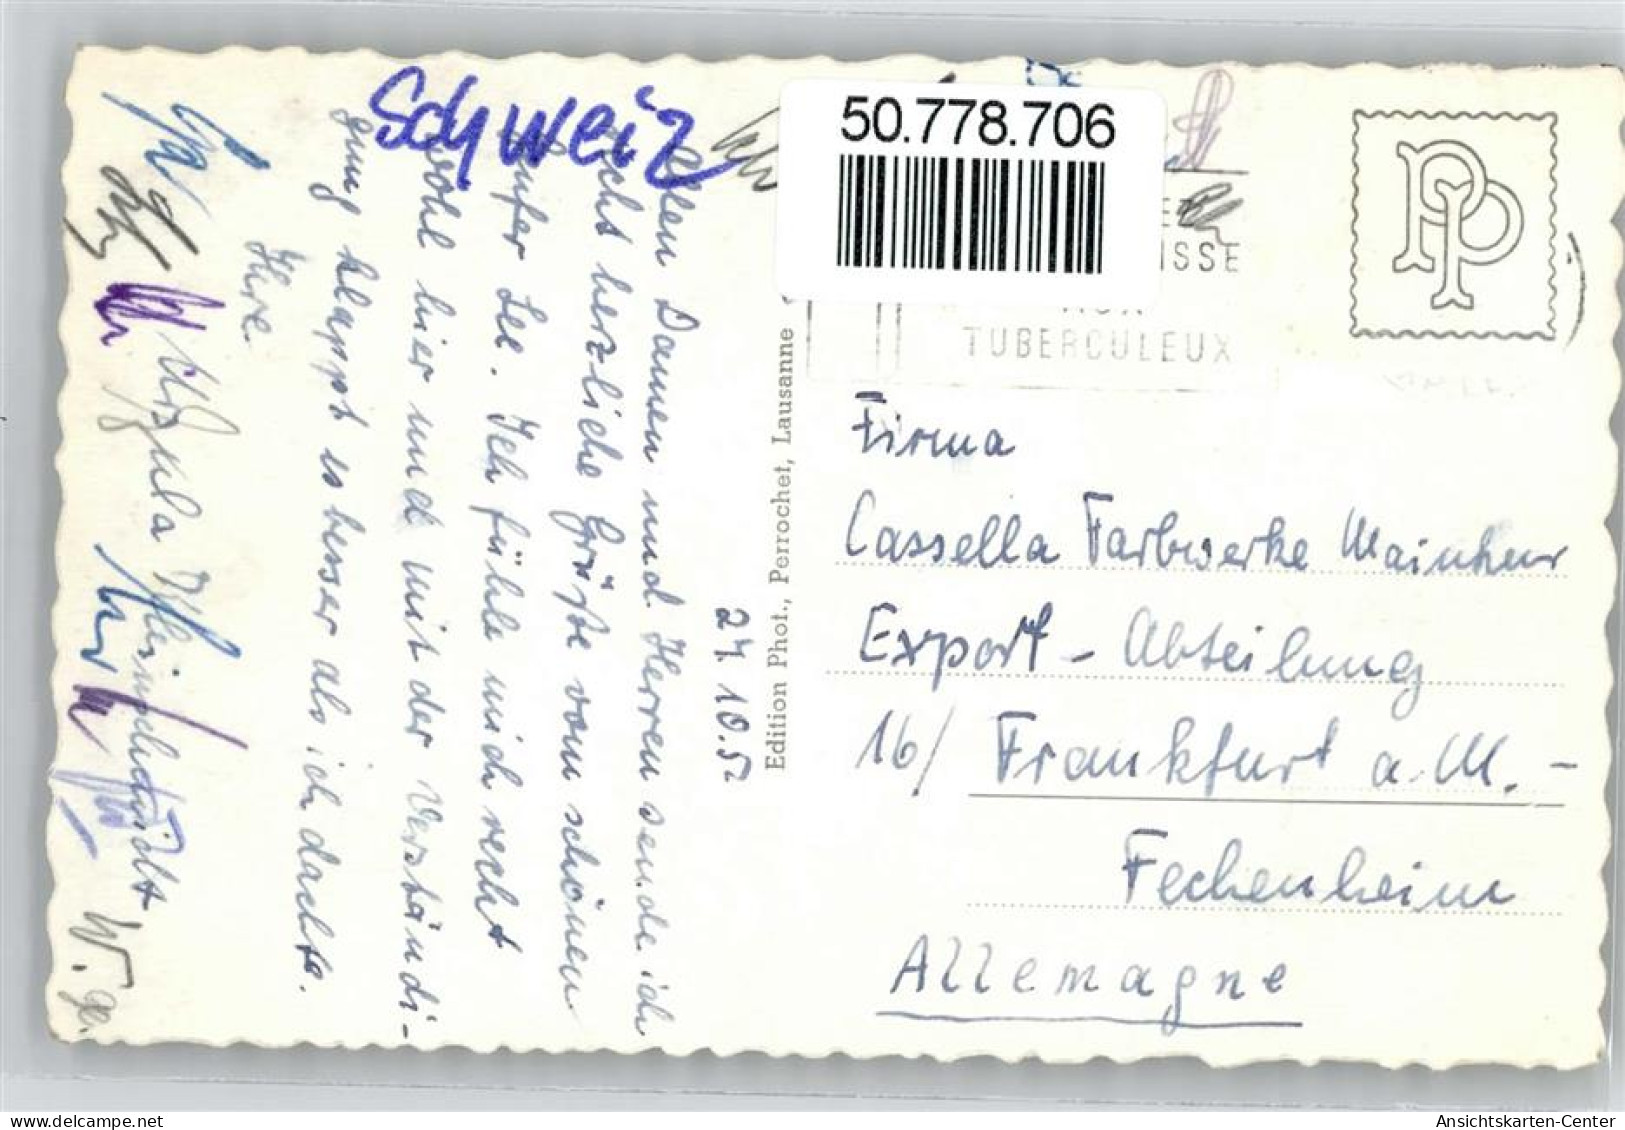 Schweiz
50.778.706
ISSE
TUBERCULEUX
PP
27. 10. 5
Allen Damen und Herren sende ich
herzliche Grüße vom schönen
Genfer See. Ich fühle mich recht
wohl hier und mit der Verständi-
gung klappt es besser als ich dachte.
Ihre
Ursula Kleinschmidt
W. ge.
Edition Phot., Perrochet, Lausanne
Firma
Cassella Farbwerke Mainkur
Export - Abteilung
16/ Frankfurt a. M. -
Fechenheim
Allemagne
Ansichtskarten-Center